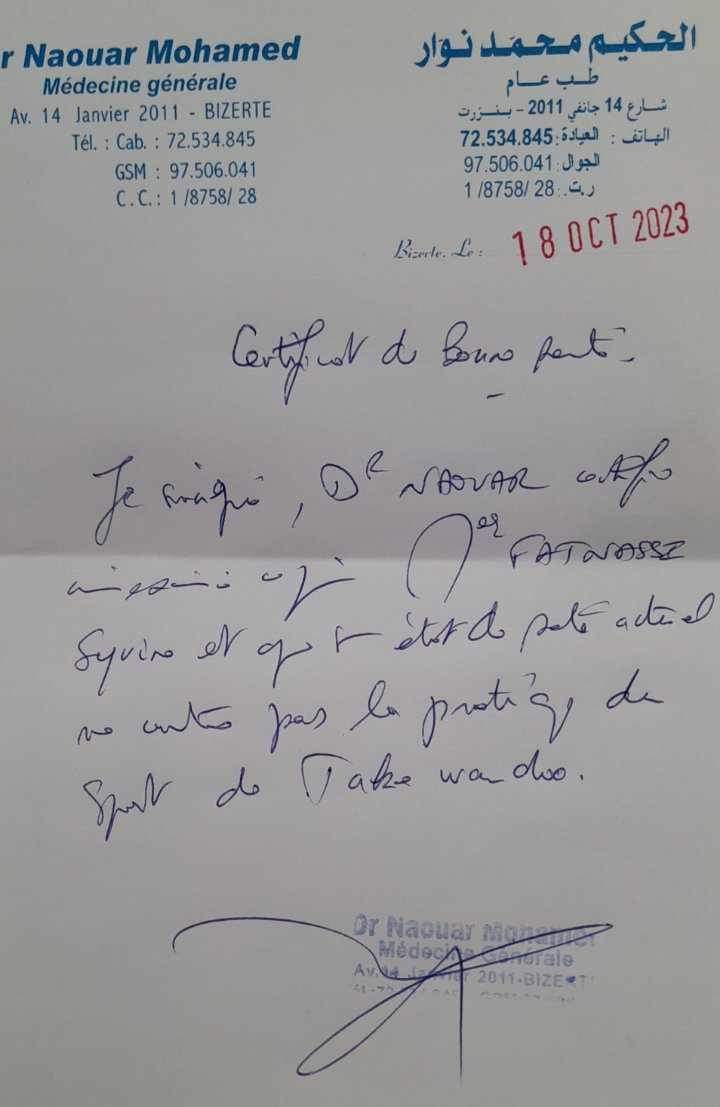 r Naouar Mohamed
Médecine générale
Av. 14 Janvier 2011 - BIZERTE
Tél. : Cab. : 72.534.845
GSM : 97.506.041
C.C.: 1 /8758/ 28
الحكيم محمد نوار
طب عام
شارع 14 جانفي 2011 - بنزرت
الهاتف : العيادة: 72.534.845
الجوال: 97.506.041
ر.ت.: 28 /8758/ 1
Bizerte. Le : 18 OCT 2023
Certificat de Bonne santé
Je soussigné, Dr NAOUAR certifie
FATNASSI
et que état de santé actuel
ne contre pas la pratique du
Sport de Take wandoo.
Dr Naouar Mohamed
Médecine Générale
Av. 14 Janvier 2011-BIZERT